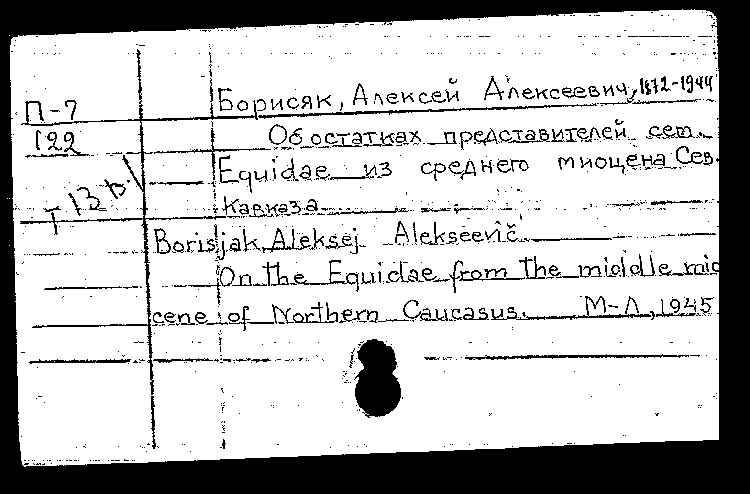 П-7 Борисяк, Алексей Алексеевич, 1872-1944
122 Об остатках представителей сем.
Equidae из среднего миоцена Сев.
Кавказа
Borisjak, Aleksej Alekseevič
On the Equidae from the middle mio
cene of Northern Caucasus. М-Л, 1945